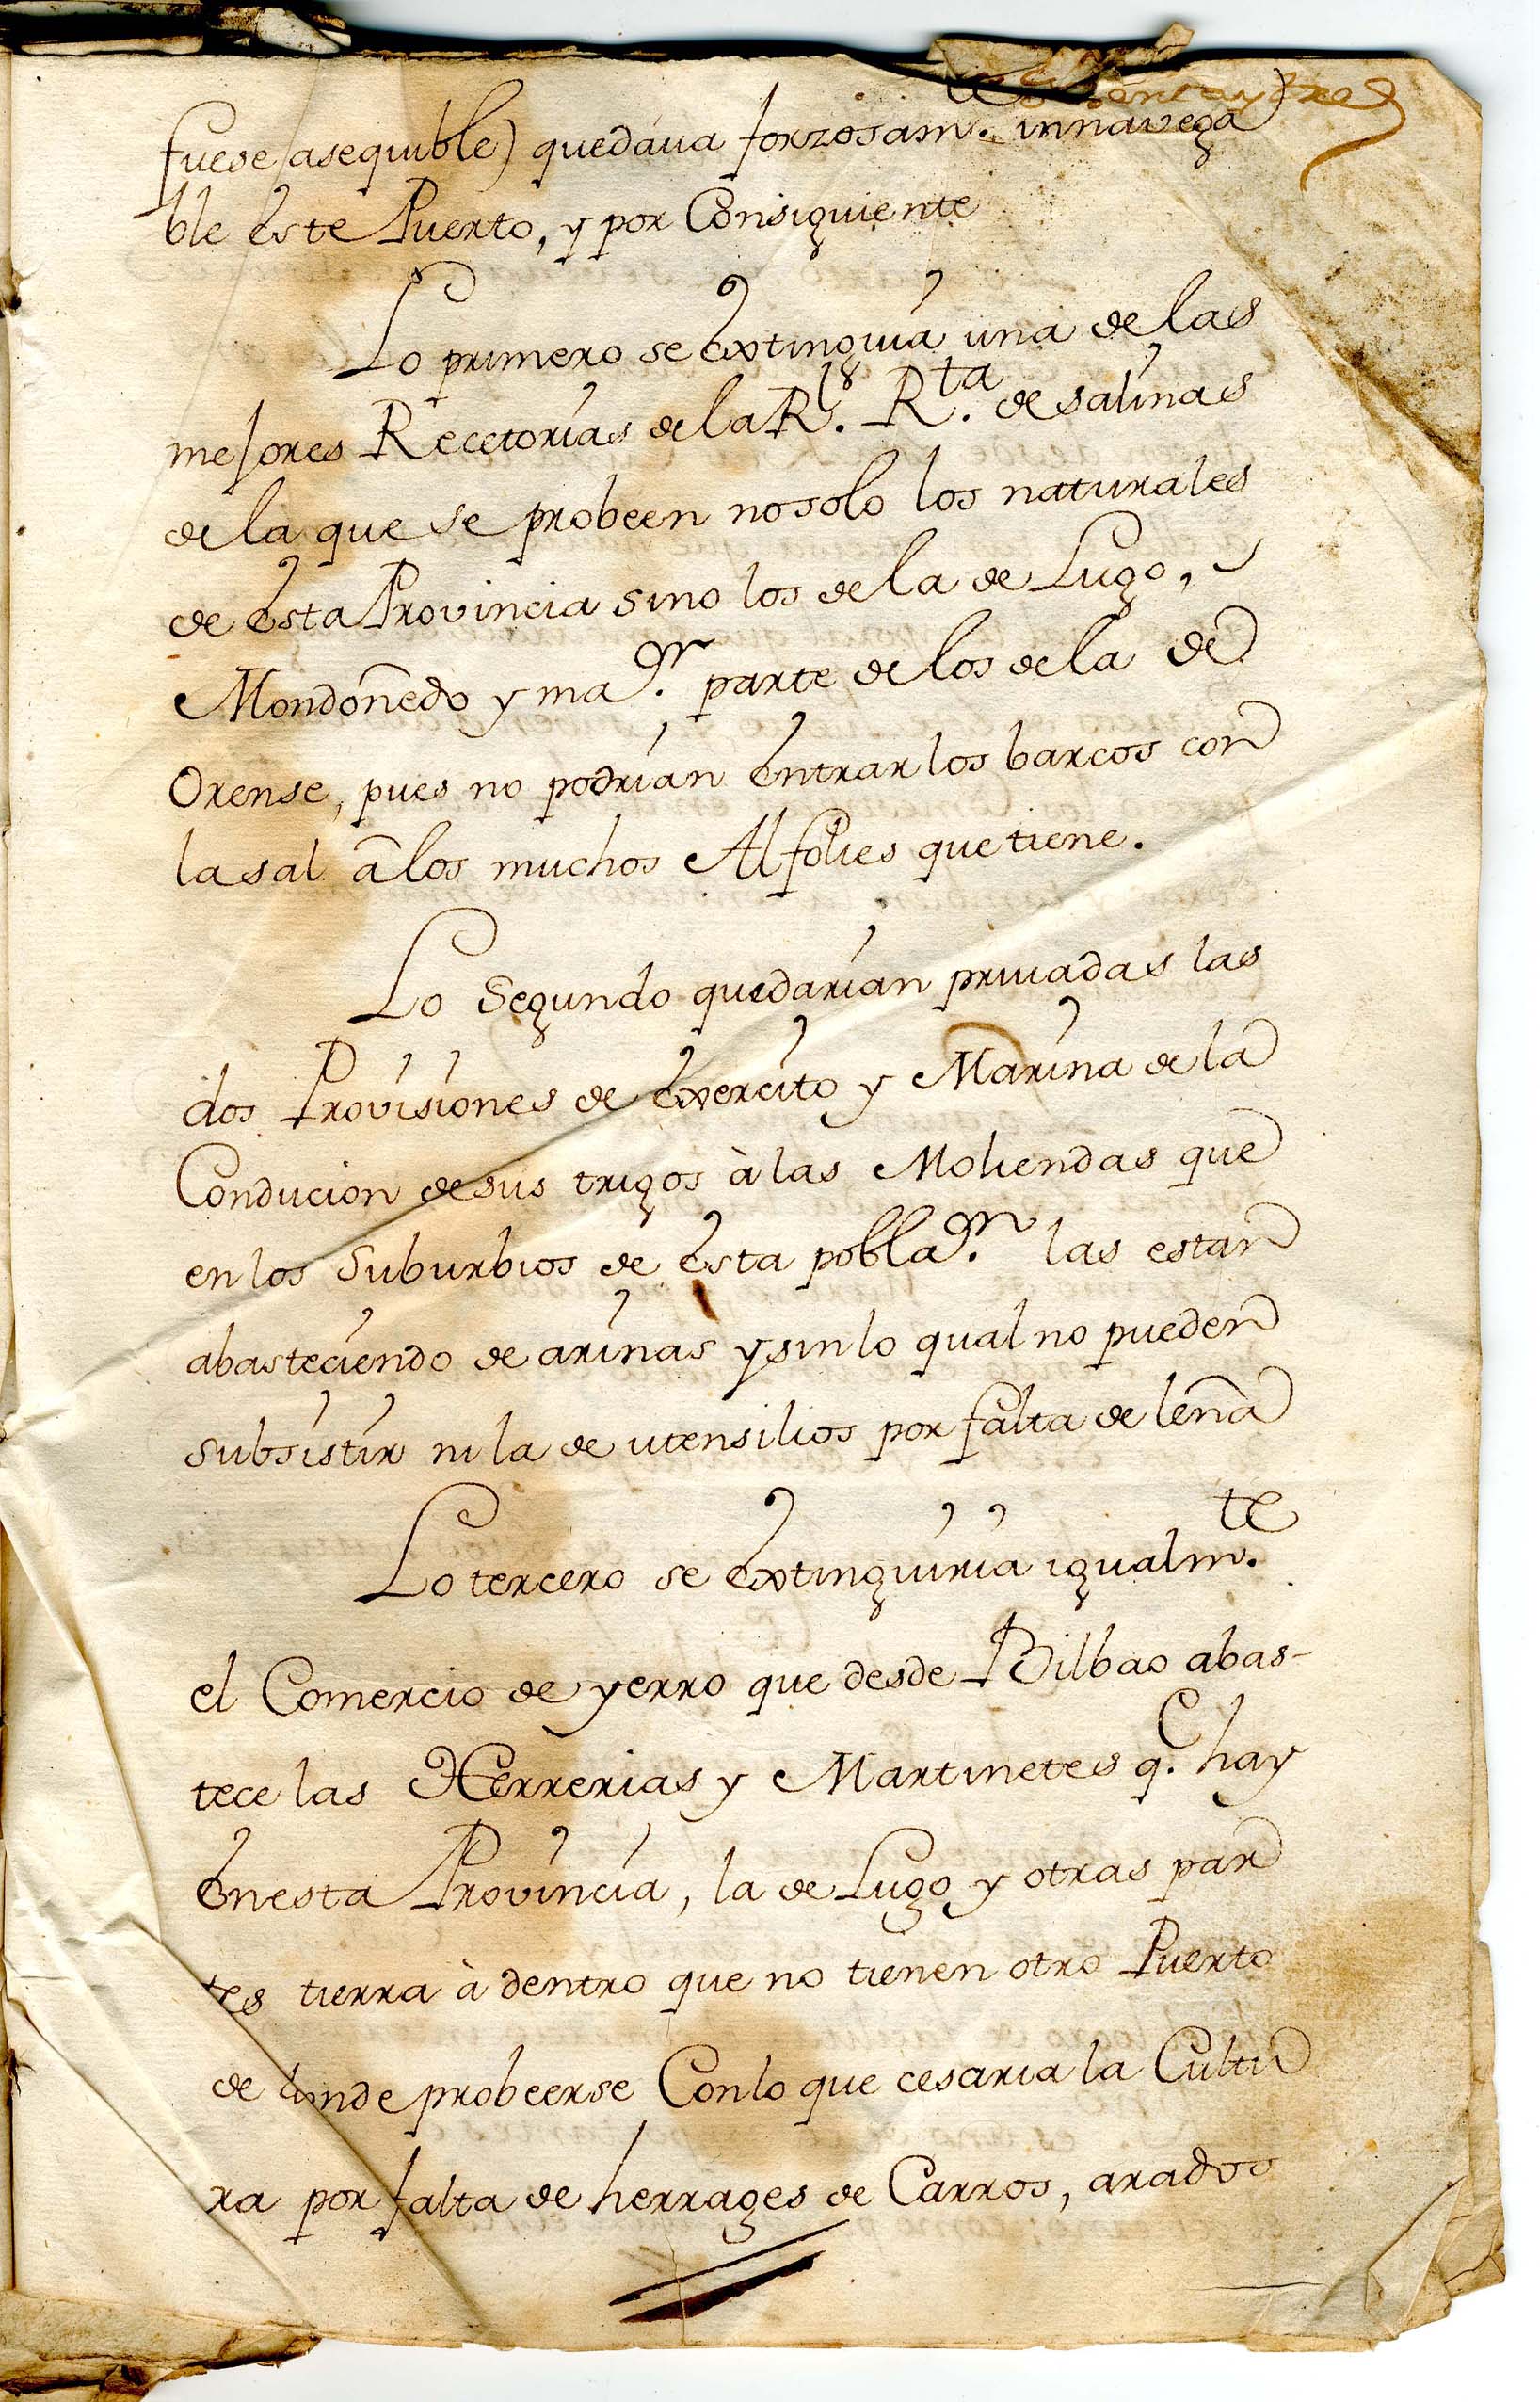 fuese asequible) quedáua forzosam.te innavega
ble este Puerto, y por Consiguiente
Lo primero se extinguía una de las
mejores Recetorías de la Rl. Rta. de salinas
de la que se probeen no solo los naturales
de esta Provincia sino los de la de Lugo,
Mondoñedo y maor. parte de los de la de
Orense, pues no podrían entrar los barcos con
la sal à los muchos Alfolíes que tiene.
Lo Segundo quedarían priuadas las
dos Provisiones de Exercito y Marina de la
Conducion de sus trigos à las Moliendas que
en los Suburbios de esta poblaon. las estan
abasteciendo de arinas y sin lo qual no pueden
subsistir ni la de utensilios por falta de leña
Lo tercero se extinguiría igualm.te
el Comercio de yerro que desde Bilbao abas-
tece las Herrerias y Martinetes q.e hay
en esta Provincia, la de Lugo y otras par
tes tierra à dentro que no tienen otro Puerto
de donde probeerse Con lo que cesaria la Cultu
ra por falta de herrages de Carros, arados